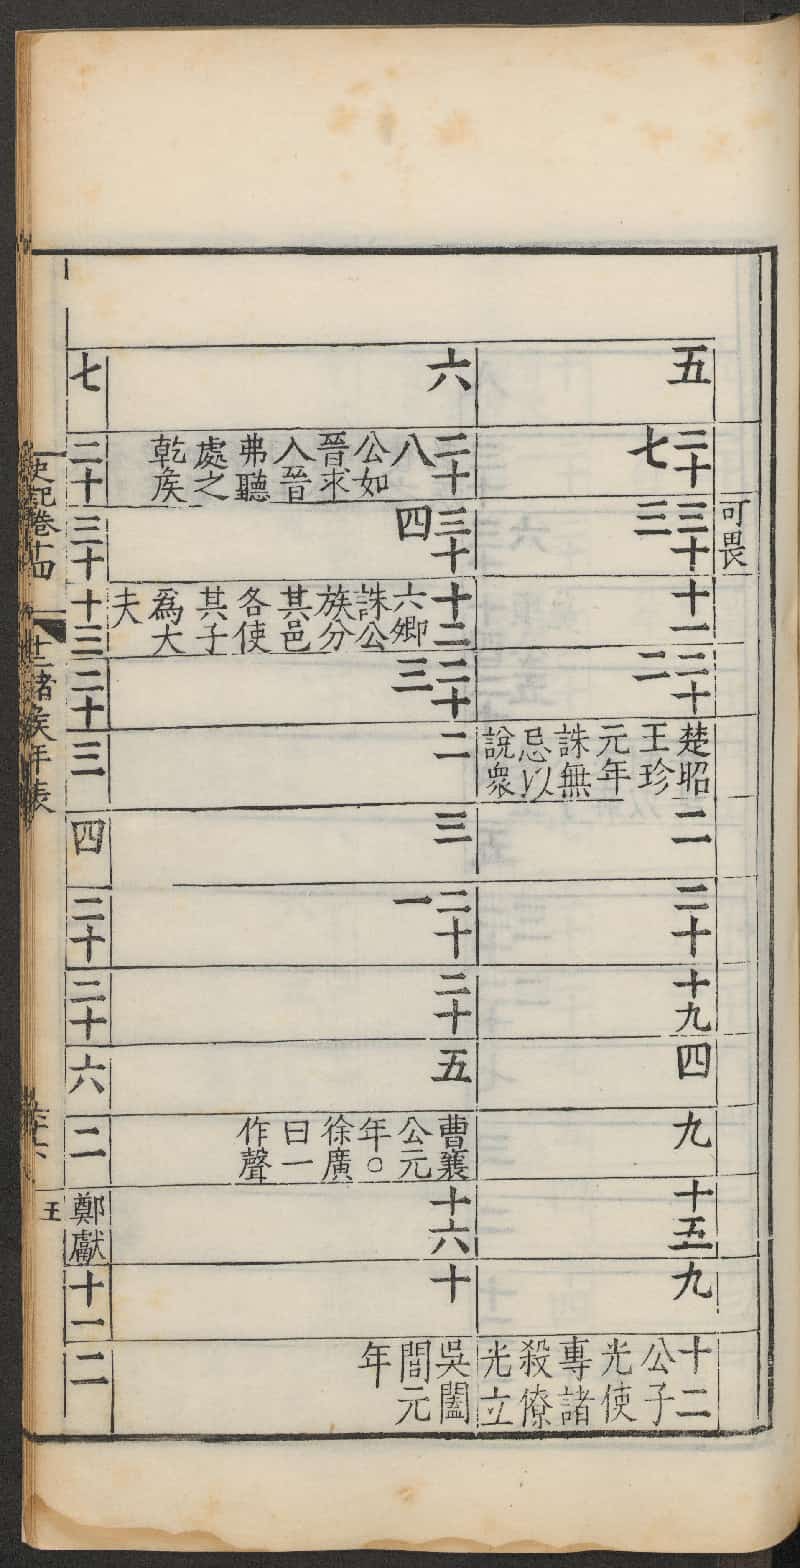 可畏
五
二十
七
三十
三
十一
二十
二
楚昭
王珍
元年
誅無
忌以
說衆
二
二十
十九
四
九
十五
九
十二
公子
光使
專諸
殺僚
光立
六
二十
八
公如
晉求
入晉
弗聽
處之
乾矦
三十
四
十二
六卿
誅公
族分
其邑
各使
其子
爲大
夫
二十
三
二
三
二十
一
二十
五
曹襄
公元
年○
徐廣
曰一
作聲
十六
十
吳闔
閭元
年
七
二十
三十
十三
二十
三
四
二十
二十
六
二
鄭獻
十一
二
史記卷十四
十二諸矦年表
五